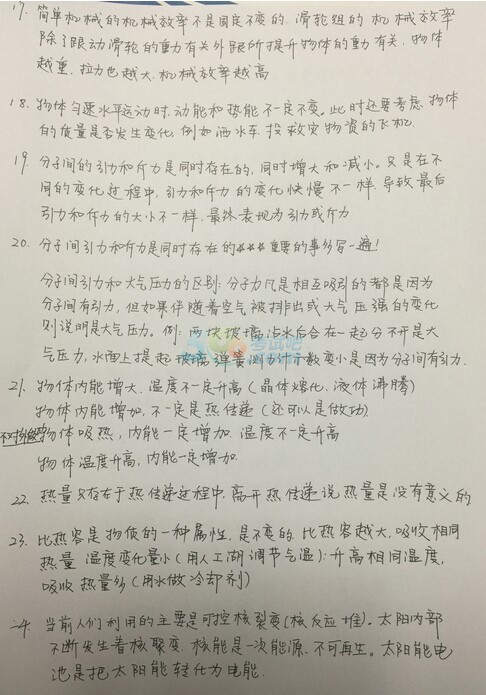 17. 简单机械的机械效率不是固定不变的. 滑轮组的机械效率
除了跟动滑轮的重力有关外跟所提升物体的重力有关, 物体
越重, 拉力也越大, 机械效率越高
18. 物体匀速水平运动时, 动能和势能不一定不变。此时还要考虑物体
的质量是否发生变化, 例如洒水车, 投救灾物资的飞机.
19. 分子间的引力和斥力是同时存在的, 同时增大和减小。只是在不
同的变化过程中, 引力和斥力的变化快慢不一样, 导致最后
引力和斥力的大小不一样, 最终表现为引力或斥力
20. 分子间引力和斥力是同时存在的 重要的事多写一遍!
分子间引力和大气压力的区别: 分子力凡是相互吸引的都是因为
分子间有引力, 但如果伴随着空气被排出或大气压强的变化
则说明是大气压力。例: 两块玻璃沾水后合在一起分不开是大
气压力, 水面上提起玻璃弹簧测力计示数变小是因为分子间有引力.
21. 物体内能增大, 温度不一定升高 (晶体熔化, 液体沸腾)
物体内能增加, 不一定是热传递 (还可以是做功)
物体吸热, 内能一定增加. 温度不一定升高
物体温度升高, 内能一定增加.
22. 热量只存在于热传递过程中, 离开热传递说热量是没有意义的
23. 比热容是物质的一种属性, 是不变的. 比热容越大, 吸收相同
热量 温度变化量小 (用人工湖调节气温): 升高相同温度,
吸收热量多 (用水做冷却剂)
24 当前人们利用的主要是可控核裂变 (核反应堆)。太阳内部
不断发生着核聚变. 核能是一次能源, 不可再生。太阳能电
池是把太阳能转化为电能.